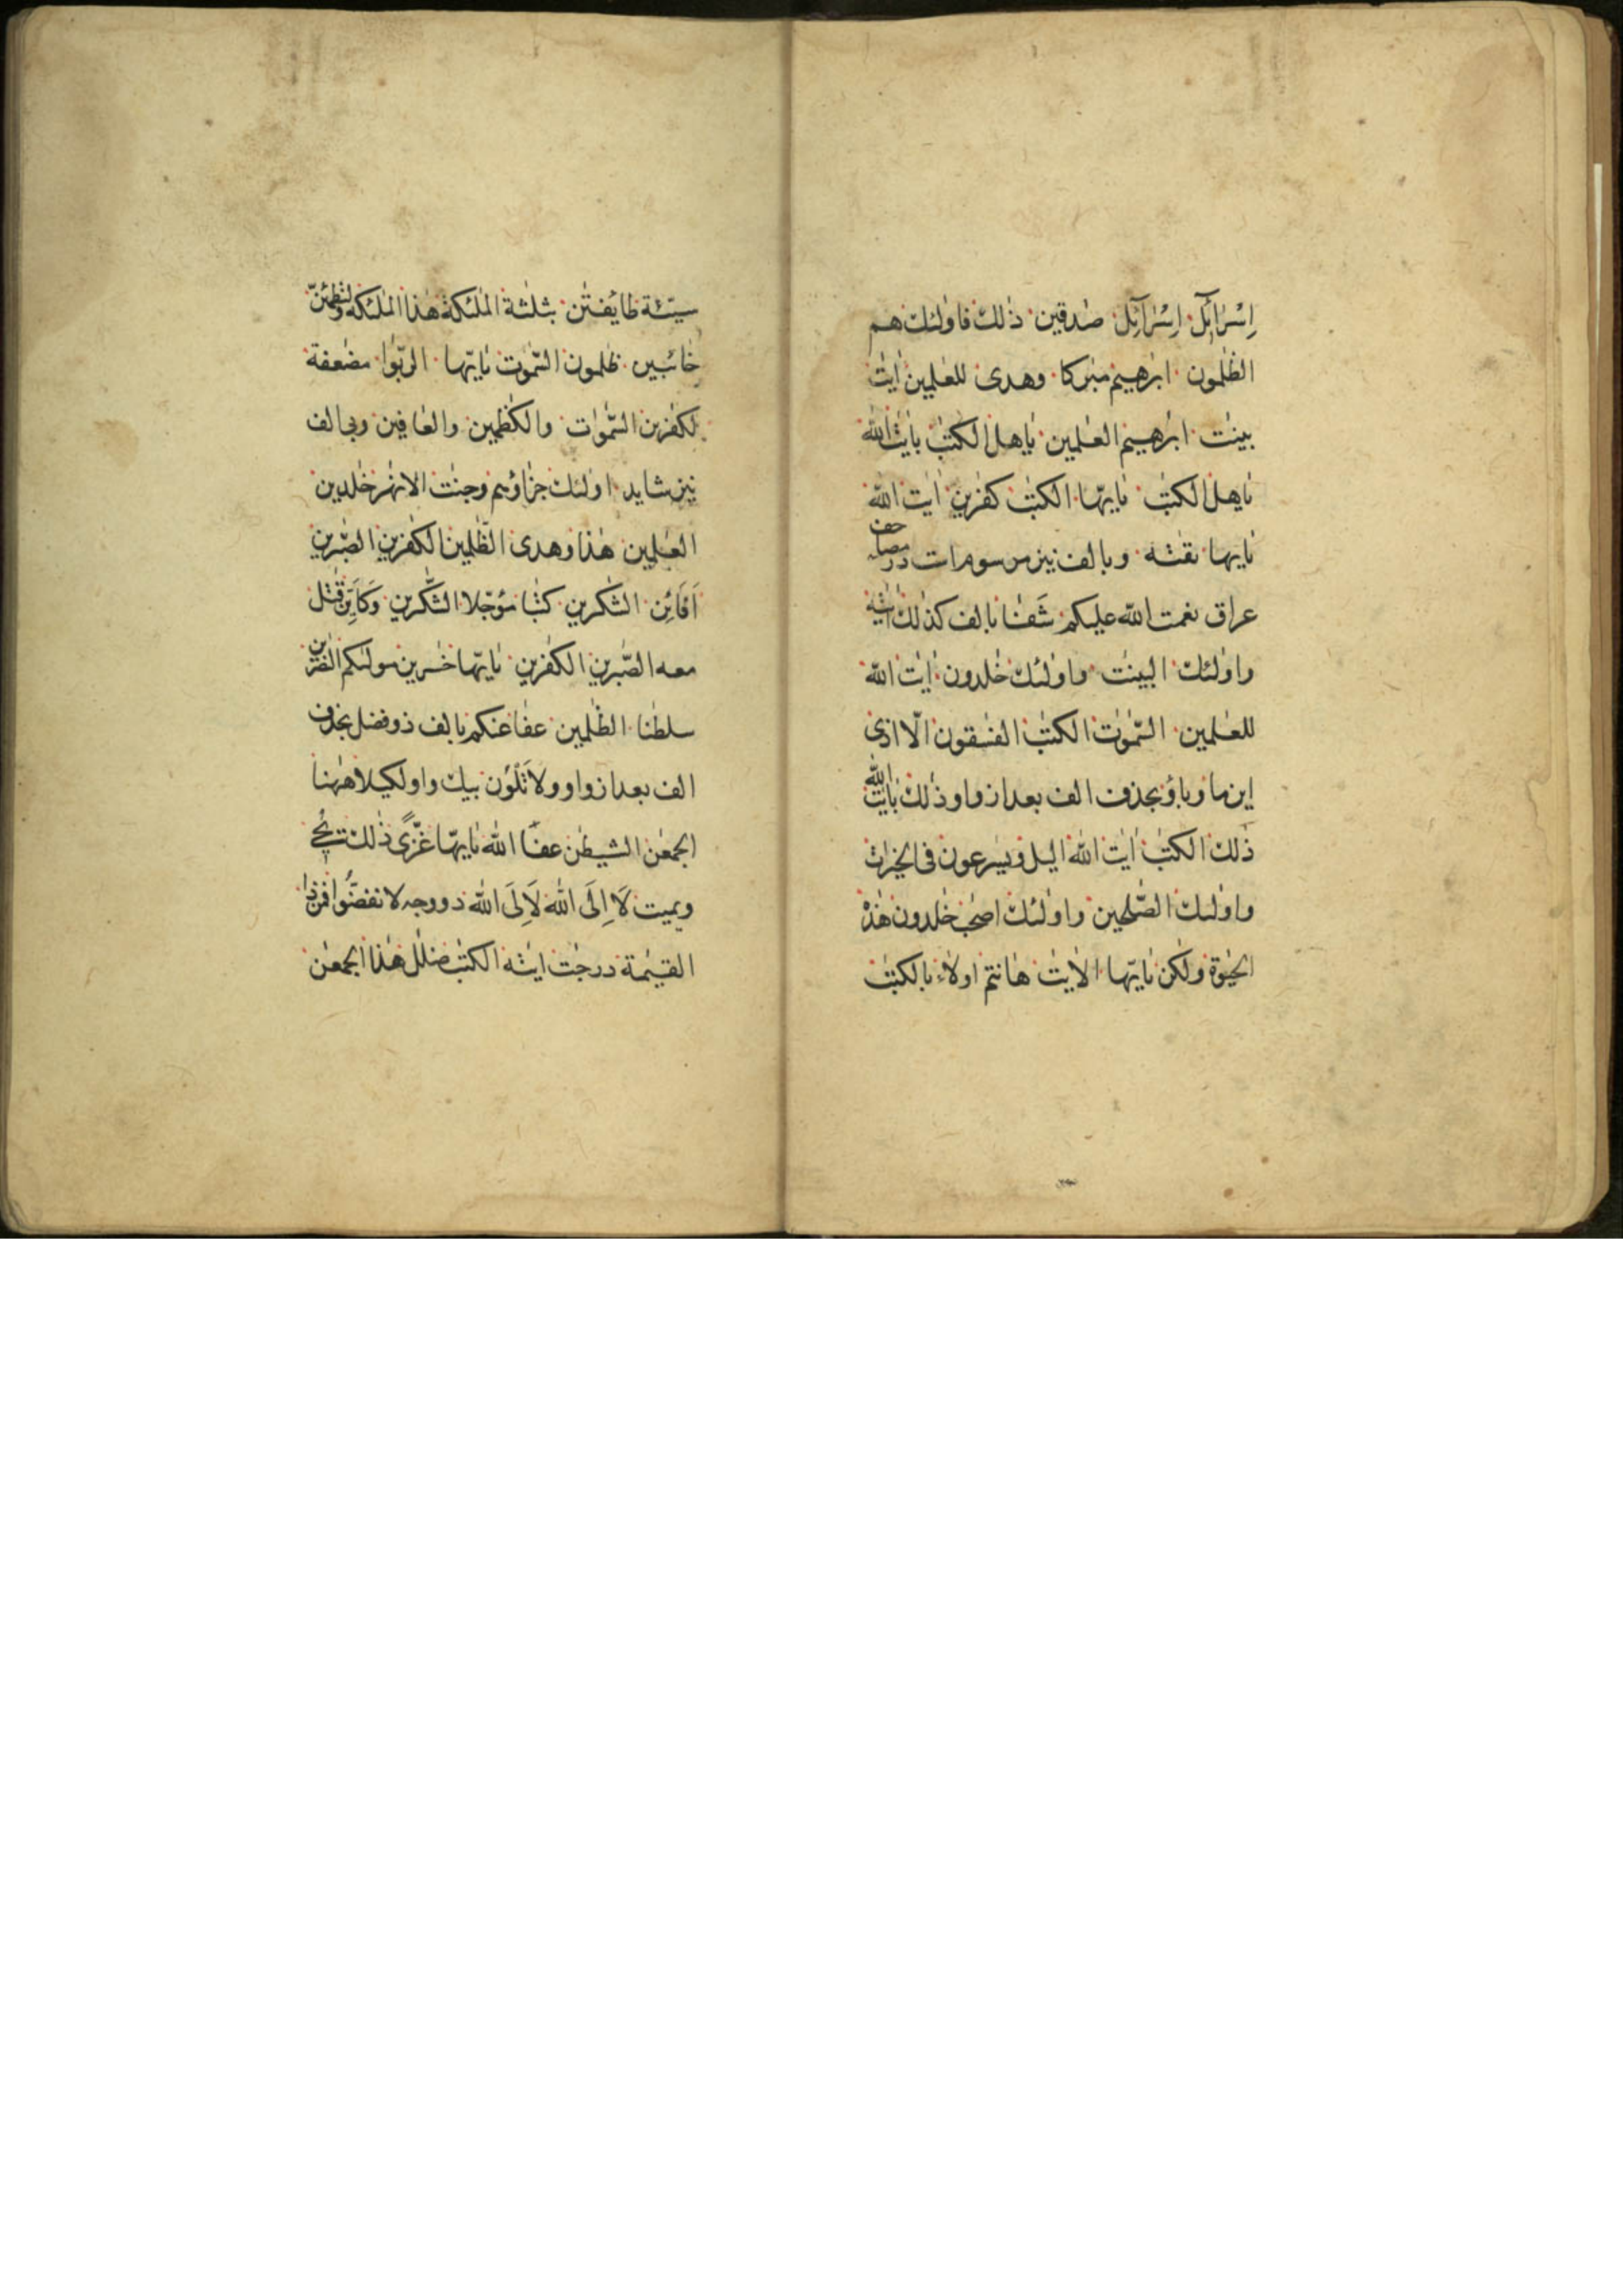 اِسْرٰآئِلَ اِسْرٰآئِل صٰدقين ذٰلك فاولٰئك هم
الظّٰلمون ابرٰهيم مبٰركا وهدى للعٰلمين اٰيٰت
بينٰت ابرٰهيم العٰلمين ياهل الكتٰب باٰيٰت اللّٰه
ياهل الكتٰب يايّها الكتٰب كفرين اٰيٰت اللّٰه
يايها تقٰته وبالف نيز مرسوم است در مصاحف
عراق نعمت اللّٰه عليكم شَفَا بالف كذٰلك اٰيٰته
واولٰئك البينٰت واولٰئك خٰلدون اٰيٰت اللّٰه
للعٰلمين السّمٰوٰت الكتٰب الفٰسقون الّا اذى
اين ما وباؤ بحذف الف بعد از واو ذٰلك باٰيٰت اللّٰه
ذٰلك الكتٰب اٰيٰت اللّٰه اليل ويسٰرعون فى الخيرٰت
واولٰئك الصّٰلحين واولٰئك اصحٰب خٰلدون هٰذه
الحيٰوة ولٰكن يايّها الاٰيٰت هٰانتم اولاء بالكتٰب
سيّئة طايفتٰن بثلٰثة الملٰئكة هٰذا الملٰئكة ولتطمئنّ
خائبين ظٰلمون السّمٰوٰت يايّها الربٰوا مضٰعفة
لكٰفرين السّمٰوٰت والكٰظمين والعافين وبى الف
نيز شايد اولٰئك جزاؤهم وجنٰت الانهٰر خٰلدين
العٰلمين هٰذا وهدى الظّٰلمين الكٰفرين الصّٰبرين
اَفَائِن الشّٰكرين كتٰبا مؤجّلا الشّٰكرين وَكَاَيِّن قٰتل
معه الصّٰبرين الكٰفرين يايّها خٰسرين مولٰكم النّٰصرين
سلطٰنا الظّٰلمين عفا عنكم بالف ذو فضل بحذف
الف بعد از واو ولا تَلْوٗن بيك واو لكيلا هٰهنا
الجمعٰن الشيطٰن عفا اللّٰه يايّها غزّىً ذٰلك يحى
ويميت لَا اِلَى اللّٰه لَاِلَى اللّٰه دو وجه لانفضّوا فمن ذا
القيٰمة درجٰت اٰيٰته الكتٰب ضلٰل هٰذا الجمعٰن